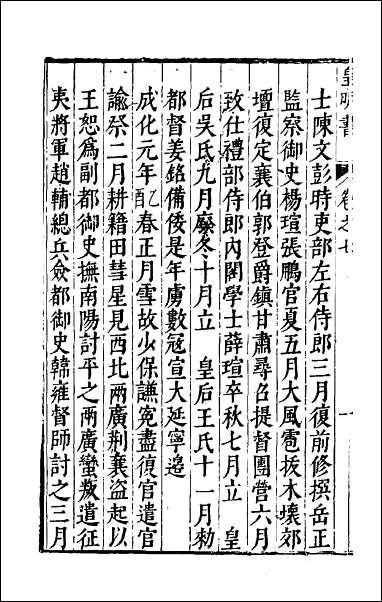 皇明書
卷之七
士陳文彭時吏部左右侍郎三月復前修撰岳正
監察御史楊瑄張鵬官夏五月大風雹拔木壞郊
壇復定襄伯郭登爵鎮甘肅尋召提督團營六月
致仕禮部侍郎內閣學士薛瑄卒秋七月立　皇
后吳氏九月廢冬十月立　皇后王氏十一月勑
都督姜銘備倭是年虜數冦宣大延寧邊
成化元年乙酉春正月雪故少保謙冤盡復官遣官
諭祭二月耕籍田彗星見西北兩廣荆襄盗起以
王恕爲副都御史撫南陽討平之兩廣蠻叛遣征
夷將軍趙輔總兵僉都御史韓雍督師討之三月